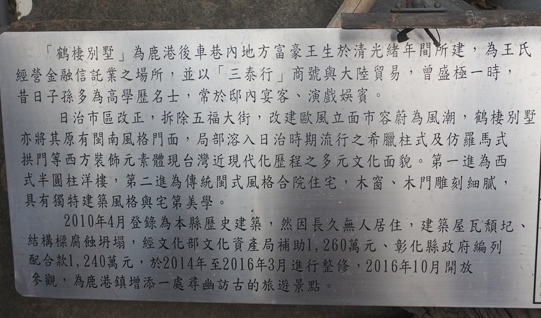 「鶴棲別墅」為鹿港後車巷內地方富豪王生於清光緒年間所建，為王氏
經營金融信託業之場所，並以「三泰行」商號與大陸貿易，曾盛極一時，
昔日子孫多為高學歷名士，常於邸內宴客、演戲娛賓。
日治市區改正，拆除五福大街，改建歐風立面市容蔚為風潮，鶴棲別墅
亦將其原有閩南風格門面，局部溶入日治時期流行之希臘柱式及仿羅馬式
拱門等西方裝飾元素體現台灣近現代化歷程之多元文化面貌。第一進為西
式半圓柱洋樓，第二進為傳統閩式風格合院住宅，木窗、木門雕刻細膩，
具有獨特建築風格與宅第美學。
2010年4月登錄為本縣歷史建築，然因長久無人居住，建築屋瓦頹圮、
結構樑腐蝕坍塌，經文化部文化資產局補助1,260萬元、彰化縣政府編列
配合款1,240萬元，於2014年至2016年3月進行整修，2016年10月開放
參觀，為鹿港鎮增添一處尋幽訪古的旅遊景點。